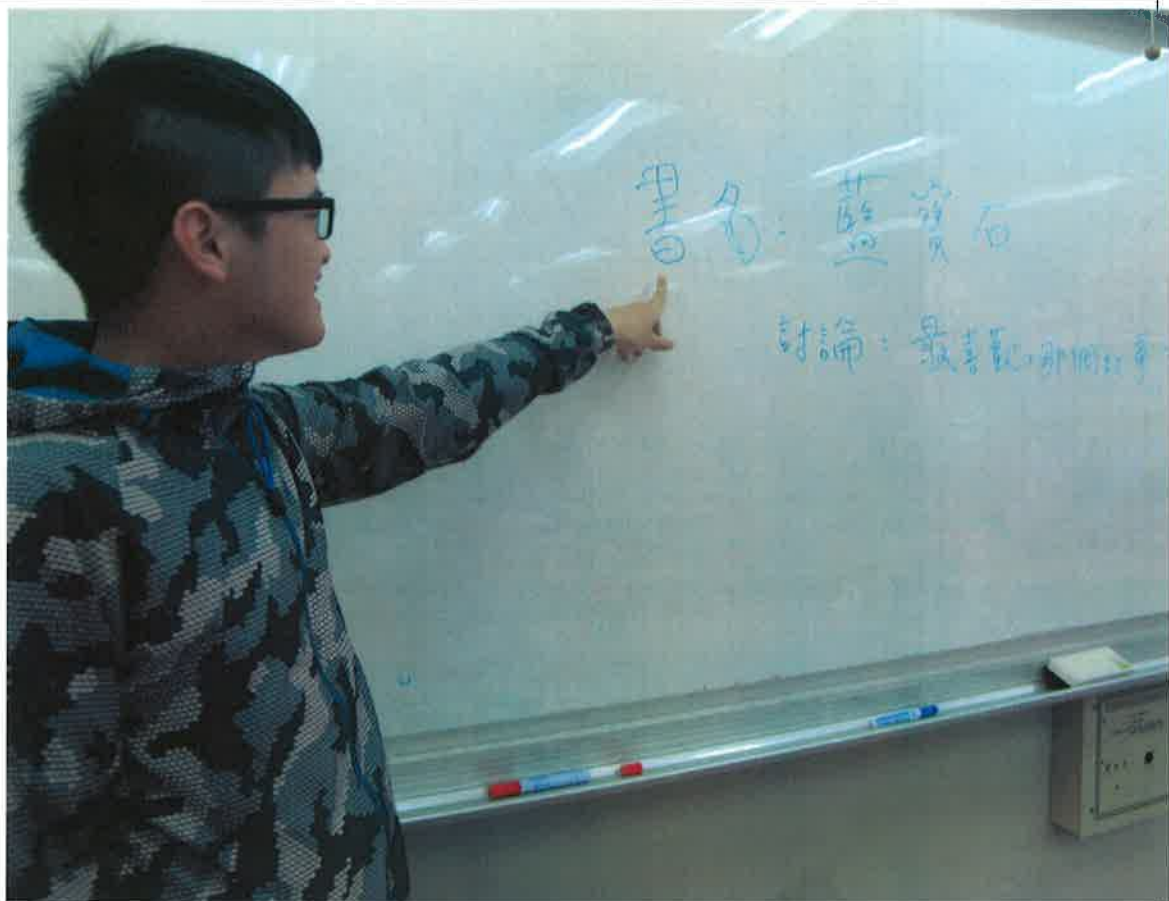 書名：藍寶石
討論：最喜歡哪個故事